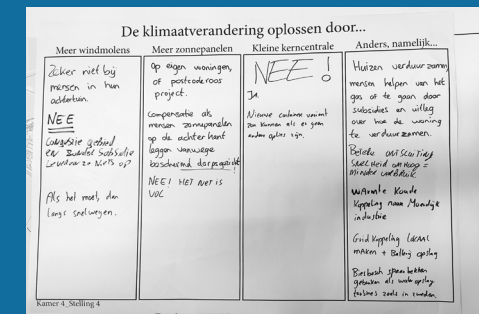 De klimaatverandering oplossen door...
Meer windmolens
Zeker niet bij
mensen in hun
achtertuin.
NEE
Landelijk gebied
en
Als het moet, dan
langs snelwegen.
Meer zonnepanelen
Op eigen woningen,
of postcoderoos
project.
Compensatie als
mensen zonnepanelen
op de achterkant
leggen vanwege
beschermd dorpsgezicht
NEE! HET NET IS
VOL
Kleine kerncentrale
NEE!
Ja.
Nieuwe centrale
zou kunnen als er geen
andere zijn.
Anders, namelijk...
Huizen verduurzamen,
mensen helpen van het
gas af te gaan door
subsidies en uitleg
over hoe de woning
te verduurzamen.
Betere
SNELHEID OMHOOG =
MINDER VERBRUIK
WARMTE Koude
Koppeling naar Moerdijk
industrie
Grid Koppeling LOKAAL
MAKEN + Batterij opslag
Biesbosch spaarbekken
gebruiken als opslag
zoals in zweden.
Kamer 4_Stelling 4